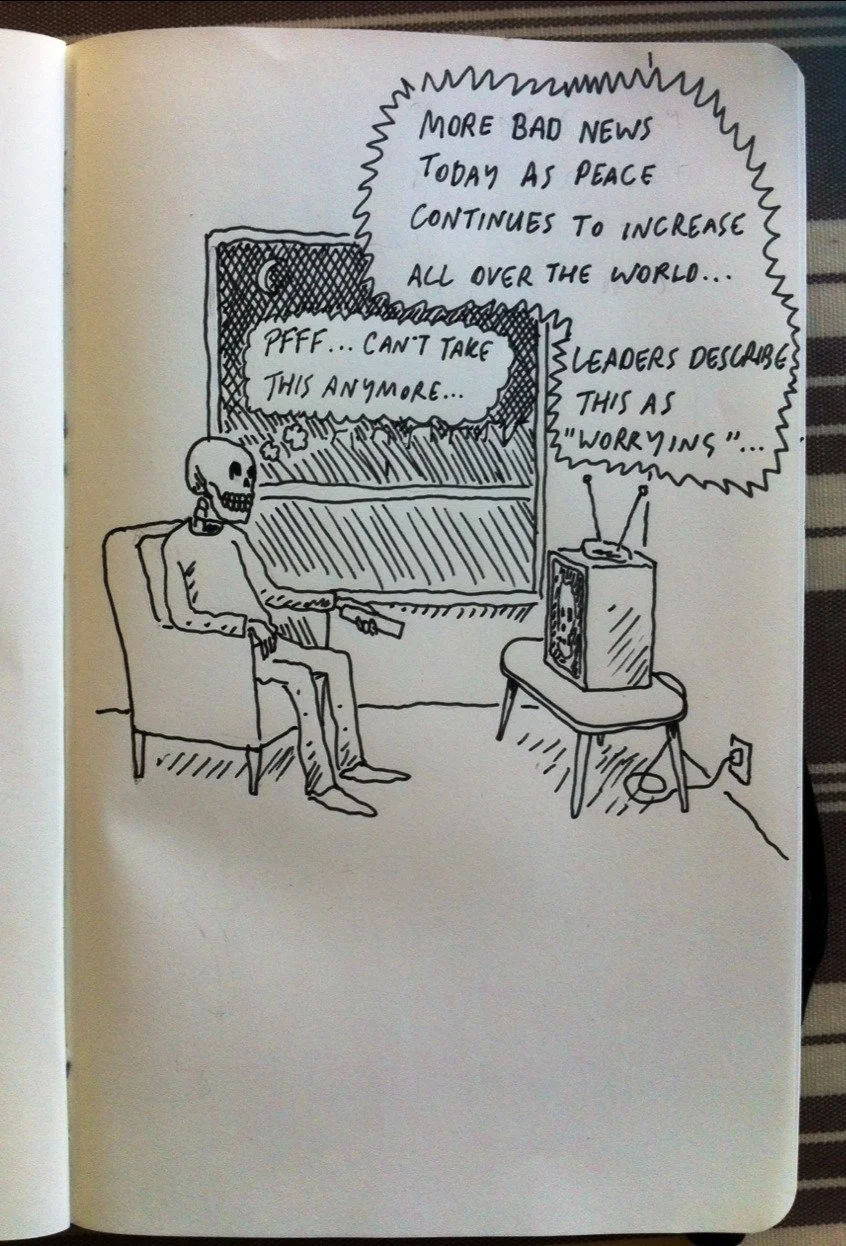 MORE BAD NEWS
TODAY AS PEACE
CONTINUES TO INCREASE
ALL OVER THE WORLD...
LEADERS DESCRIBE
THIS AS
"WORRYING"...
PFFF... CAN'T TAKE
THIS ANYMORE...